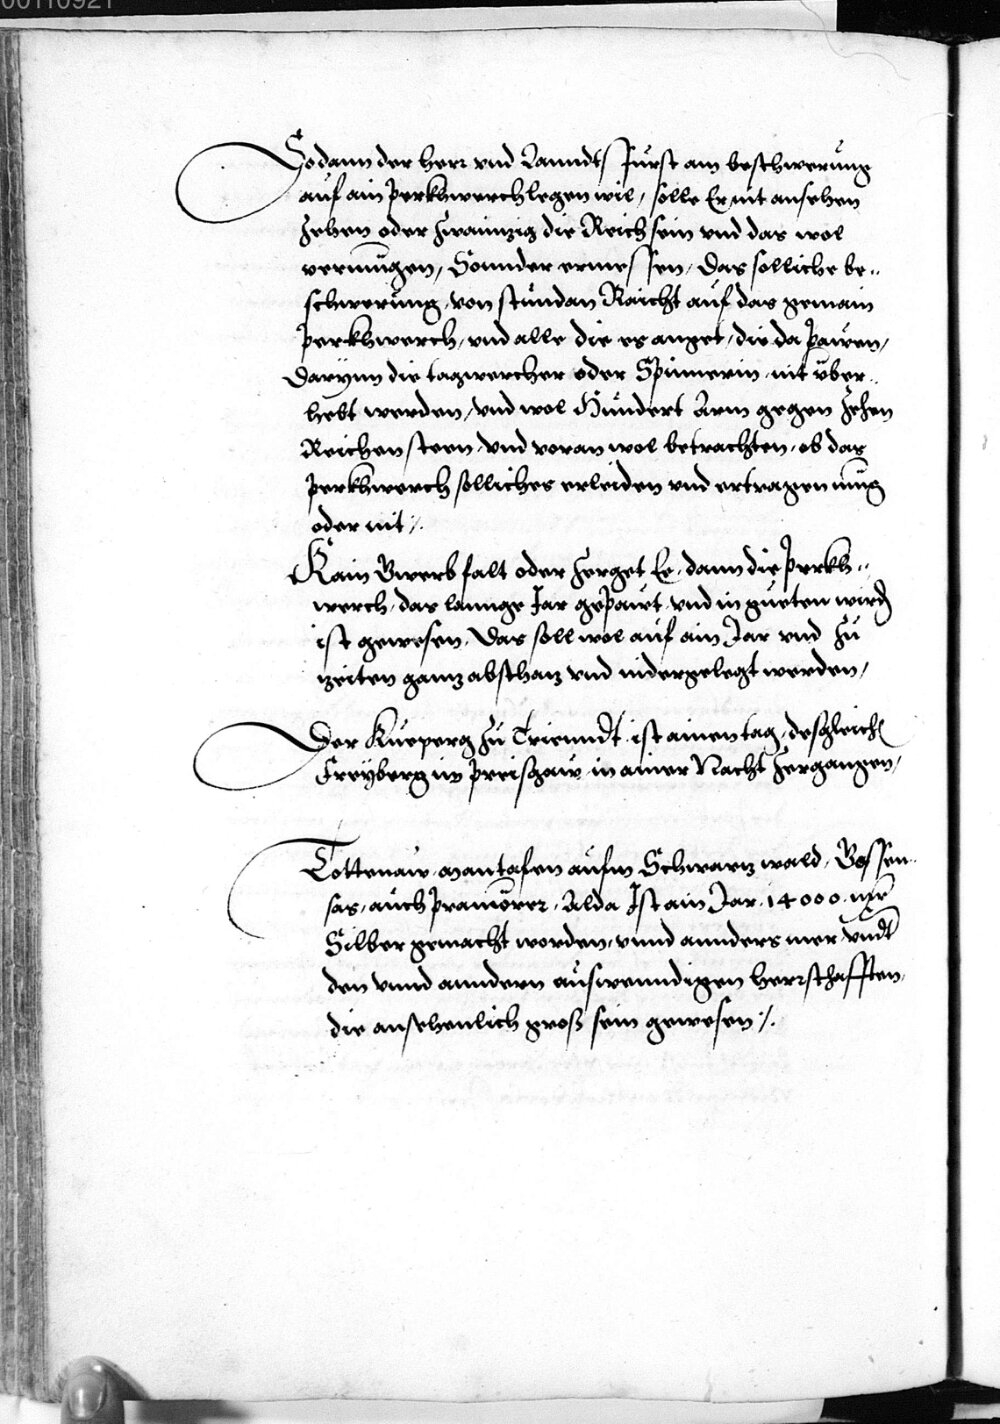 00110921
Sodann der herr vnd Lanndts Fürst ain beschwerung
auf ain perkhwerch legen wil, solle Er nit ansehen
zehen oder zwainzig die Reich sein vnd das wol
vermügen, Sonnder ermessen, Das solliche be„
schwerung, von stundan Raicht auf das gemain
perkhwerch, vnd alle die es anget, die da pawen,
Darynn die tagwercher oder Spinnerin nit über„
hebt werden, vnd wol Hundert Arm gegen zehen
Reichen steen, vnd voran wol betrachten, ob das
perkhwerch solliches erleiden vnd ertragen müg
oder nit ./.
Kain Gwerb falt oder zerget Ee, dann die perkh„
werch, das lannge Jar gepawt, vnd in gueten wird
ist gewesen, Das soll wol auf ain Jar vnd zu
zeiten ganz abschaz vnd nidergelegt werden,
Der Kueperg zu Trienndt ist ainen tag, desgleich
Freyberg im preisgaw in ainer Nacht zergangen,
Tottenaw, mantasen aufm Schwarzwald, Gossen„
sas, auch pramörer, Alda Ist ain Jar 14000 mr
Silber gemacht worden, vnnd annders mer, vndt
den vnnd anndern auswenndigen herrschafften,
die ansehenlich groß sein gewesen ./.